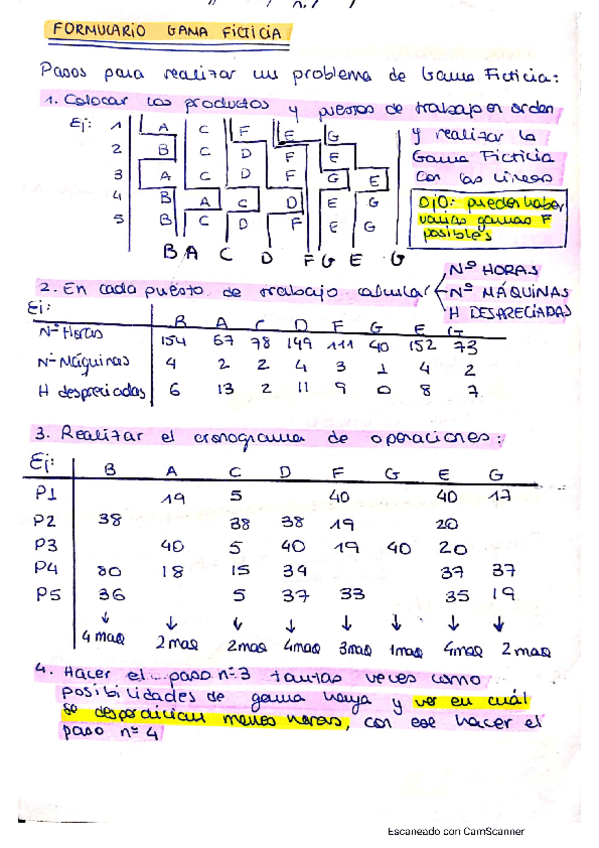 FORMULARIO GAMA FICTICIA
Pasos para realizar un problema de Gama Ficticia:
1. Colocar los productos y puestos de trabajo en orden
y realizar la
Gama Ficticia
con las lineas
OJO: pueden haber
varias gamas F
posibles
Ej: 1 A C F E G
2 B C D F E
3 A C D F G E
4 B A C D E G
5 B C D F E G
B A C D F G E G
2. En cada puesto de trabajo calcular
Nº HORAS
Nº MÁQUINAS
H DESPRECIADAS
Ej:
B A C D F G E G
Nº Horas 154 67 78 149 111 40 152 73
Nº Máquinas 4 2 2 4 3 1 4 2
H despreciadas 6 13 2 11 9 0 8 7
3. Realizar el cronograma de operaciones:
Ej: B A C D F G E G
P1 19 5 40 40 17
P2 38 38 38 19 20
P3 40 5 40 19 40 20
P4 80 18 15 34 37 37
P5 36 5 37 33 35 19
4 maq 2 maq 2maq 4maq 3maq 1maq 4maq 2 maq
4. Hacer el paso nº3 tantas veces como
posibilidades de gama haya y ver en cuál
se desperdician menos horas, con ese hacer el
paso nº 4
Escaneado con CamScanner